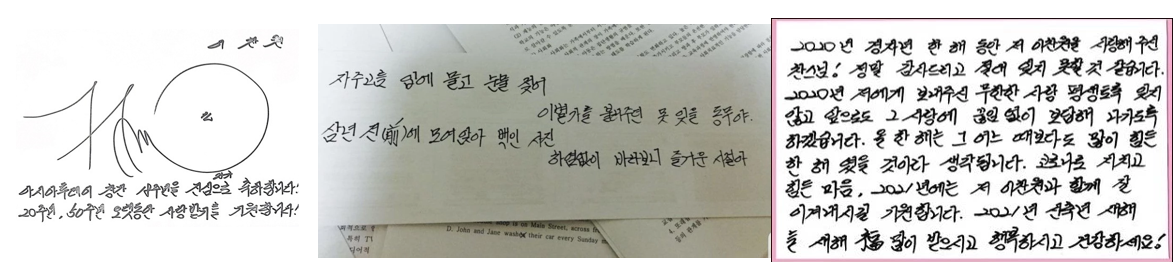 이찬원
아시아투데이 창간 16주년을 진심으로 축하합니다!
20주년, 50주년 오랫동안 사랑받기를 기원합니다!
자주고름 입에 물고 눈물 젖어
이별가를 불러주던 못 잊을 동무야.
삼년 전(前)에 모여앉아 백인 사진
하염없이 바라보니 즐거운 시절아
D. John and Jane washed their car every Sunday
2020년 경자년 한 해 동안 저 이찬원을 사랑해 주신
찬스님! 정말 감사드리고 절대 잊지 못할 것 같습니다.
2020년 저에게 보내주신 무한한 사랑 평생토록 잊지
않고 앞으로도 그 사랑에 끊임없이 보답해 나가도록
하겠습니다. 올 한 해는 그 어느 때보다도 많이 힘든
한 해 였을 것이라 생각됩니다. 코로나로 지치고
힘든 마음, 2021년에는 저 이찬원과 함께 잘
이겨내시길 기원합니다. 2021년 신축년 새해
늘 새해 福 많이 받으시고 행복하시고 건강하세요!